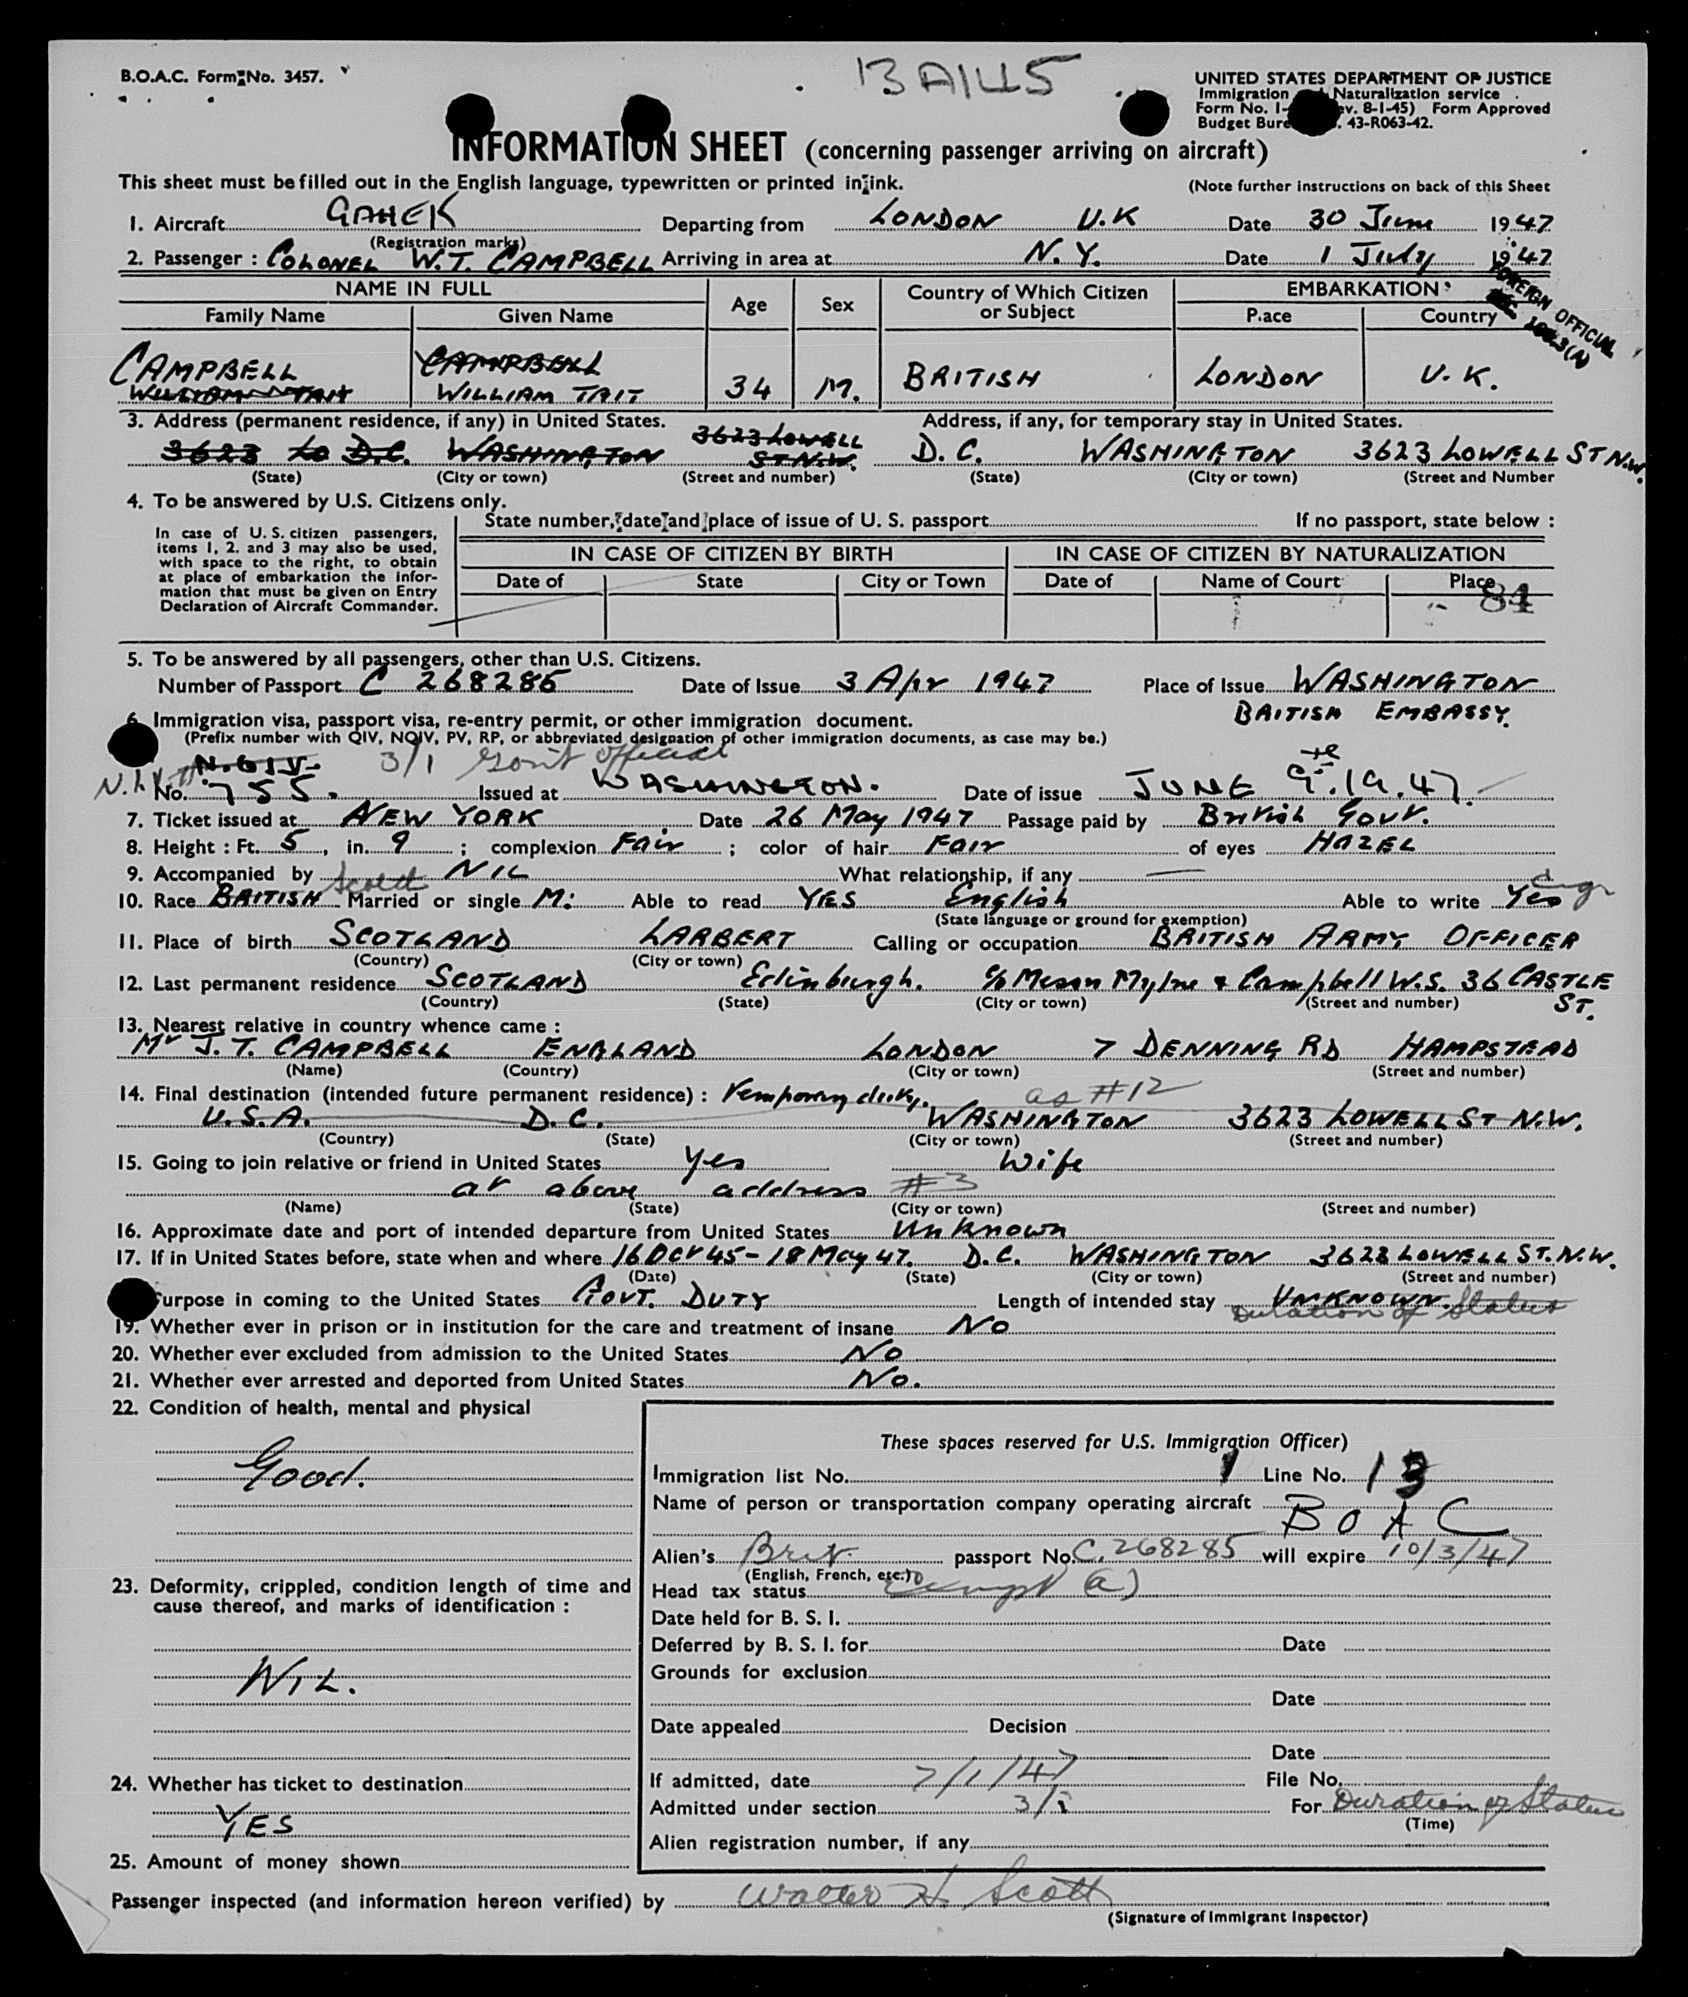 B.O.A.C. Form No. 3457.
13 A1U5
UNITED STATES DEPARTMENT OF JUSTICE
Immigration Naturalization service
Form No. I- ev. 8-1-45) Form Approved
Budget Bure . 43-R063-42.
INFORMATION SHEET (concerning passenger arriving on aircraft)
This sheet must be filled out in the English language, typewritten or printed in ink.
(Note further instructions on back of this Sheet
1. Aircraft GAHEK Departing from LONDON U.K Date 30 June 1947
(Registration marks)
2. Passenger : COLONEL W.T. CAMPBELL Arriving in area at N.Y. Date 1 July 1947
FOREIGN OFFICIAL
NAME IN FULL Age Sex Country of Which Citizen or Subject EMBARKATION
Family Name Given Name Place Country
CAMPBELL CAMPBELL
WILLIAM TAIT WILLIAM TAIT 34 M. BRITISH LONDON U.K.
3. Address (permanent residence, if any) in United States. Address, if any, for temporary stay in United States.
3623 Lo D.C. WASHINGTON 3623 LOWELL ST N.W. D.C. WASHINGTON 3623 LOWELL ST N.W.
(State) (City or town) (Street and number) (State) (City or town) (Street and Number
4. To be answered by U.S. Citizens only.
State number, date and place of issue of U. S. passport If no passport, state below :
In case of U. S. citizen passengers,
items 1, 2, and 3 may also be used,
with space to the right, to obtain
at place of embarkation the infor-
mation that must be given on Entry
Declaration of Aircraft Commander.
IN CASE OF CITIZEN BY BIRTH IN CASE OF CITIZEN BY NATURALIZATION
Date of State City or Town Date of Name of Court Place
84
5. To be answered by all passengers, other than U.S. Citizens.
Number of Passport C 268285 Date of Issue 3 Apr 1947 Place of Issue WASHINGTON
BRITISH EMBASSY.
6. Immigration visa, passport visa, re-entry permit, or other immigration document.
(Prefix number with QIV, NQIV, PV, RP, or abbreviated designation of other immigration documents, as case may be.)
3/1 Gov't Official
No. 755. Issued at WASHINGTON. Date of issue JUNE 9th. 1947.
7. Ticket issued at NEW YORK Date 26 May 1947 Passage paid by British Govt.
8. Height : Ft. 5, in. 9 ; complexion Fair ; color of hair Fair of eyes HAZEL
9. Accompanied by NIL What relationship, if any —
10. Race BRITISH Scotch Married or single M. Able to read YES English Able to write Yes
(State language or ground for exemption)
11. Place of birth SCOTLAND LARBERT Calling or occupation BRITISH ARMY OFFICER
(Country) (City or town)
12. Last permanent residence SCOTLAND Edinburgh. c/o Messrs Mylne & Campbell W.S. 36 CASTLE ST.
(Country) (State) (City or town) (Street and number)
13. Nearest relative in country whence came :
Mr J. T. CAMPBELL ENGLAND LONDON 7 DENNING RD HAMPSTEAD
(Name) (Country) (City or town) (Street and number)
14. Final destination (intended future permanent residence) : Temporary duty. as #12
U.S.A. D.C. WASHINGTON 3623 LOWELL ST N.W.
(Country) (State) (City or town) (Street and number)
15. Going to join relative or friend in United States Yes Wife
at above address #3
(Name) (State) (City or town) (Street and number)
16. Approximate date and port of intended departure from United States Unknown
17. If in United States before, state when and where 16 Oct 45 - 18 May 47. D.C. WASHINGTON 3623 LOWELL ST. N.W.
(Date) (State) (City or town) (Street and number)
Purpose in coming to the United States GOVT. DUTY Length of intended stay UNKNOWN.
Duration of Status
19. Whether ever in prison or in institution for the care and treatment of insane No
20. Whether ever excluded from admission to the United States No
21. Whether ever arrested and deported from United States No.
22. Condition of health, mental and physical
Good.
These spaces reserved for U.S. Immigration Officer)
Immigration list No. 1 Line No. 13
Name of person or transportation company operating aircraft
BOAC
Alien's Brit. passport No. C. 268285 will expire 10/3/47
(English, French, etc.)
23. Deformity, crippled, condition length of time and
cause thereof, and marks of identification :
NIL.
Head tax status exempt (a)
Date held for B. S. I.
Deferred by B. S. I. for Date
Grounds for exclusion
Date
Date appealed Decision
Date
24. Whether has ticket to destination
YES
If admitted, date 7/1/47 File No.
Admitted under section 3/1 For Duration of Status
(Time)
Alien registration number, if any
25. Amount of money shown
Passenger inspected (and information hereon verified) by Walter H. Scott
(Signature of Immigrant Inspector)